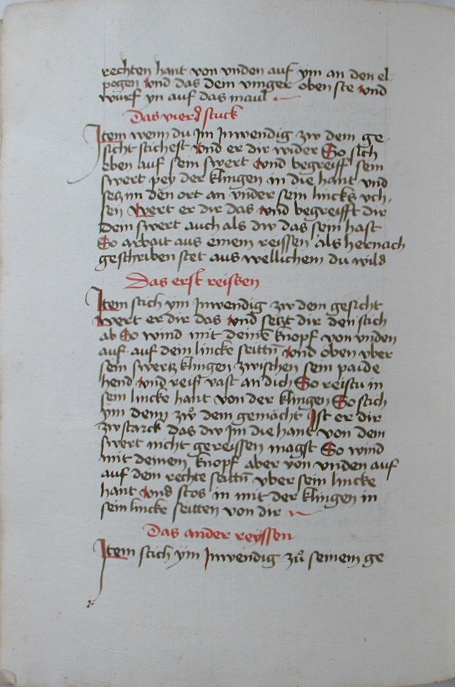 rechten hant von vnden auf ym an den el
pogen vnd das dem vinger oben ste vnd
wurf yn auf das maul
Das vierd stuck
Item wenn du Im Inwendig zw dem ge
sicht stichest vnd er dir wider So slch
eben auf sein swert vnd begreiff sein
swert pey der klingen in die hant vnd
setz im den ort an vnder sein lincks vch,
sen Wert er dir das vnd begreifft dir
dein swert auch als dw das sein hast
So arbait aus einem reissen als hernach
geschriben stet aus wellichem du wild
Das erst reissen
Item stich ym Inwendig zw dem gesicht
wert er dir das vnd setzt dir den stich
ab So wind mit deine knopf von vnden
auf auf dein lincke seittn vnd oben vber
sein swertz klingen zwischen sein paide
hend vnd reist vast an dich So reistu in
sein lincke hant von der klingen So stich
ym denn zw dem gemacht Ist er dir
zw starck das dw im die hant von dem
swert nicht gereissen magst So wind
mit deinem knopf aber von vnden auf
auf dein rechte seittn vber sein lincke
hant vnd stos in mit der klingen in
sein lincke seitten von dir
Das ander reyssen
Item stich ym Inwendig zu seinem ge